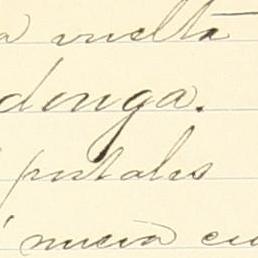 a vuelta
donga.
postales
nueva